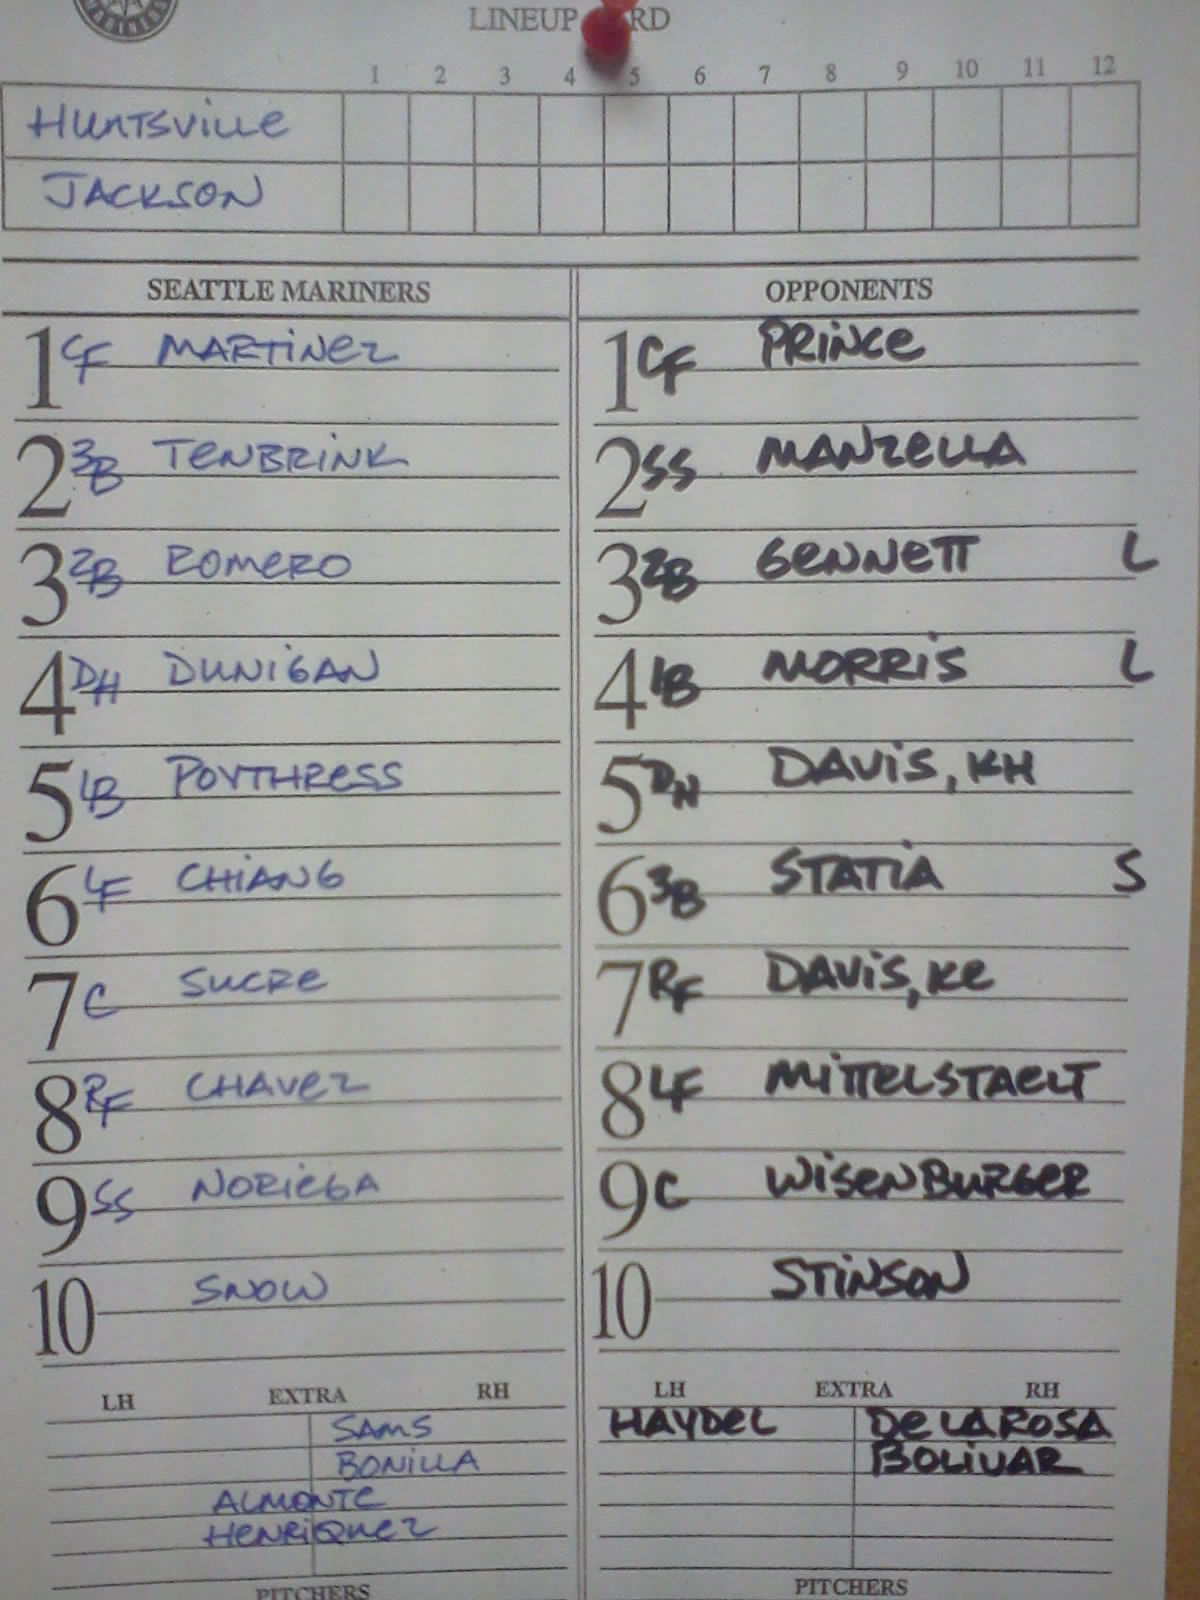 LINEUP RD
1 2 3 4 5 6 7 8 9 10 11 12
HUNTSVILLE
JACKSON
SEATTLE MARINERS
1 CF MARTINEZ
2 3B TENBRINK
3 2B ROMERO
4 DH DUNIGAN
5 1B POYTHRESS
6 LF CHIANG
7 C SUCRE
8 RF CHAVEZ
9 SS NORIEGA
10 SNOW
LH EXTRA RH
SAMS
BONILLA
ALMONTE
HENRIQUEZ
PITCHERS
OPPONENTS
1 CF PRINCE
2 SS MANZELLA
3 2B GENNETT L
4 1B MORRIS L
5 DH DAVIS, KH
6 3B STATIA S
7 RF DAVIS, KE
8 LF MITTELSTAELT
9 C WISENBURGER
10 STINSON
LH EXTRA RH
HAYDEL DE LA ROSA
BOLIVAR
PITCHERS